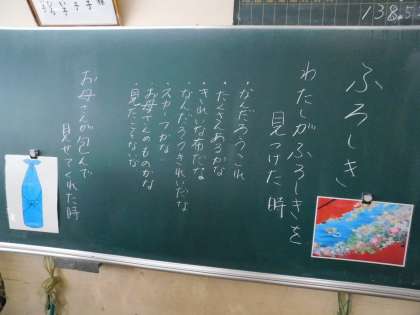 ふろしき
わたしがふろしきを
見つけた時
・なんだろうこれ
・たくさんあるな
・きれいな布だな
・なんだろうきれいだな
・スカーフかな
・お母さんのものかな
・見たことないな
お母さんが包んで
見せてくれた時
138.5